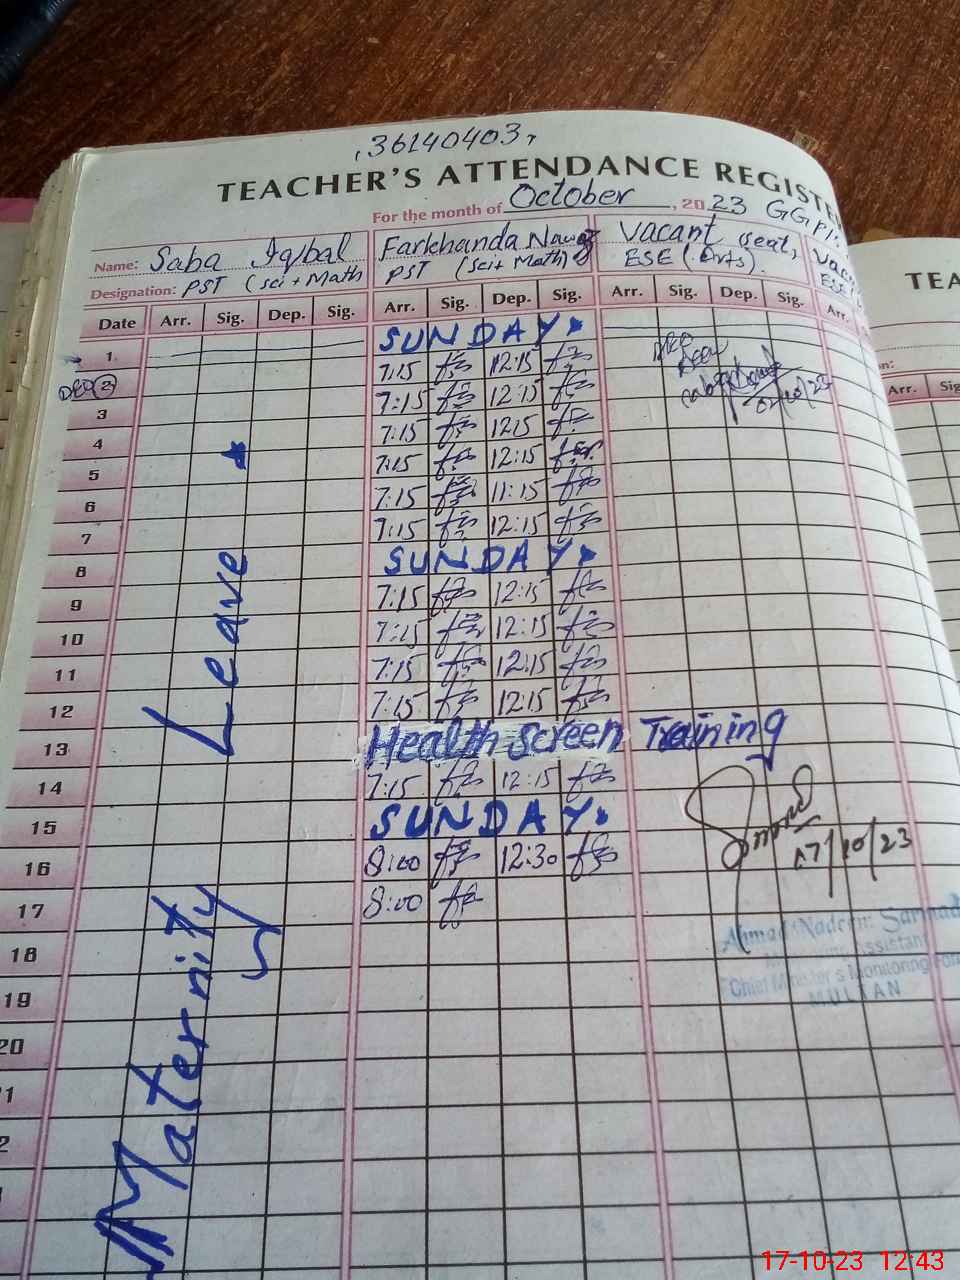 36140403
TEACHER'S ATTENDANCE REGISTE
For the month of October, 2023 GGP
Name: Saba Iqbal Farkhanda Nawaz Vacant seat,
Designation: PST (Sci + Math PST (Sci + Math) ESE (Arts).
Date Arr. Sig. Dep. Sig. Arr. Sig. Dep. Sig. Arr. Sig. Dep. Sig. Arr.
1 SUNDAY
2 7:15 12:15
3 7:15 12:15
4 7:15 12:15
5 7:15 12:15
6 7:15 11:15
7 7:15 12:15
8 SUNDAY
9 7:15 12:15
10 7:15 12:15
11 7:15 12:15
12 7:15 12:15
13 Health Screen Training
14 7:15 12:15
15 SUNDAY
16 8:00 12:30
17 8:00
18
19
20
Maternity Leave
17/10/23
Ahmad Nadeem Sarmad
Assistant
Chief Minister's Monitoring For
MULTAN
TEA
Arr. Sig
17-10-23 12:43